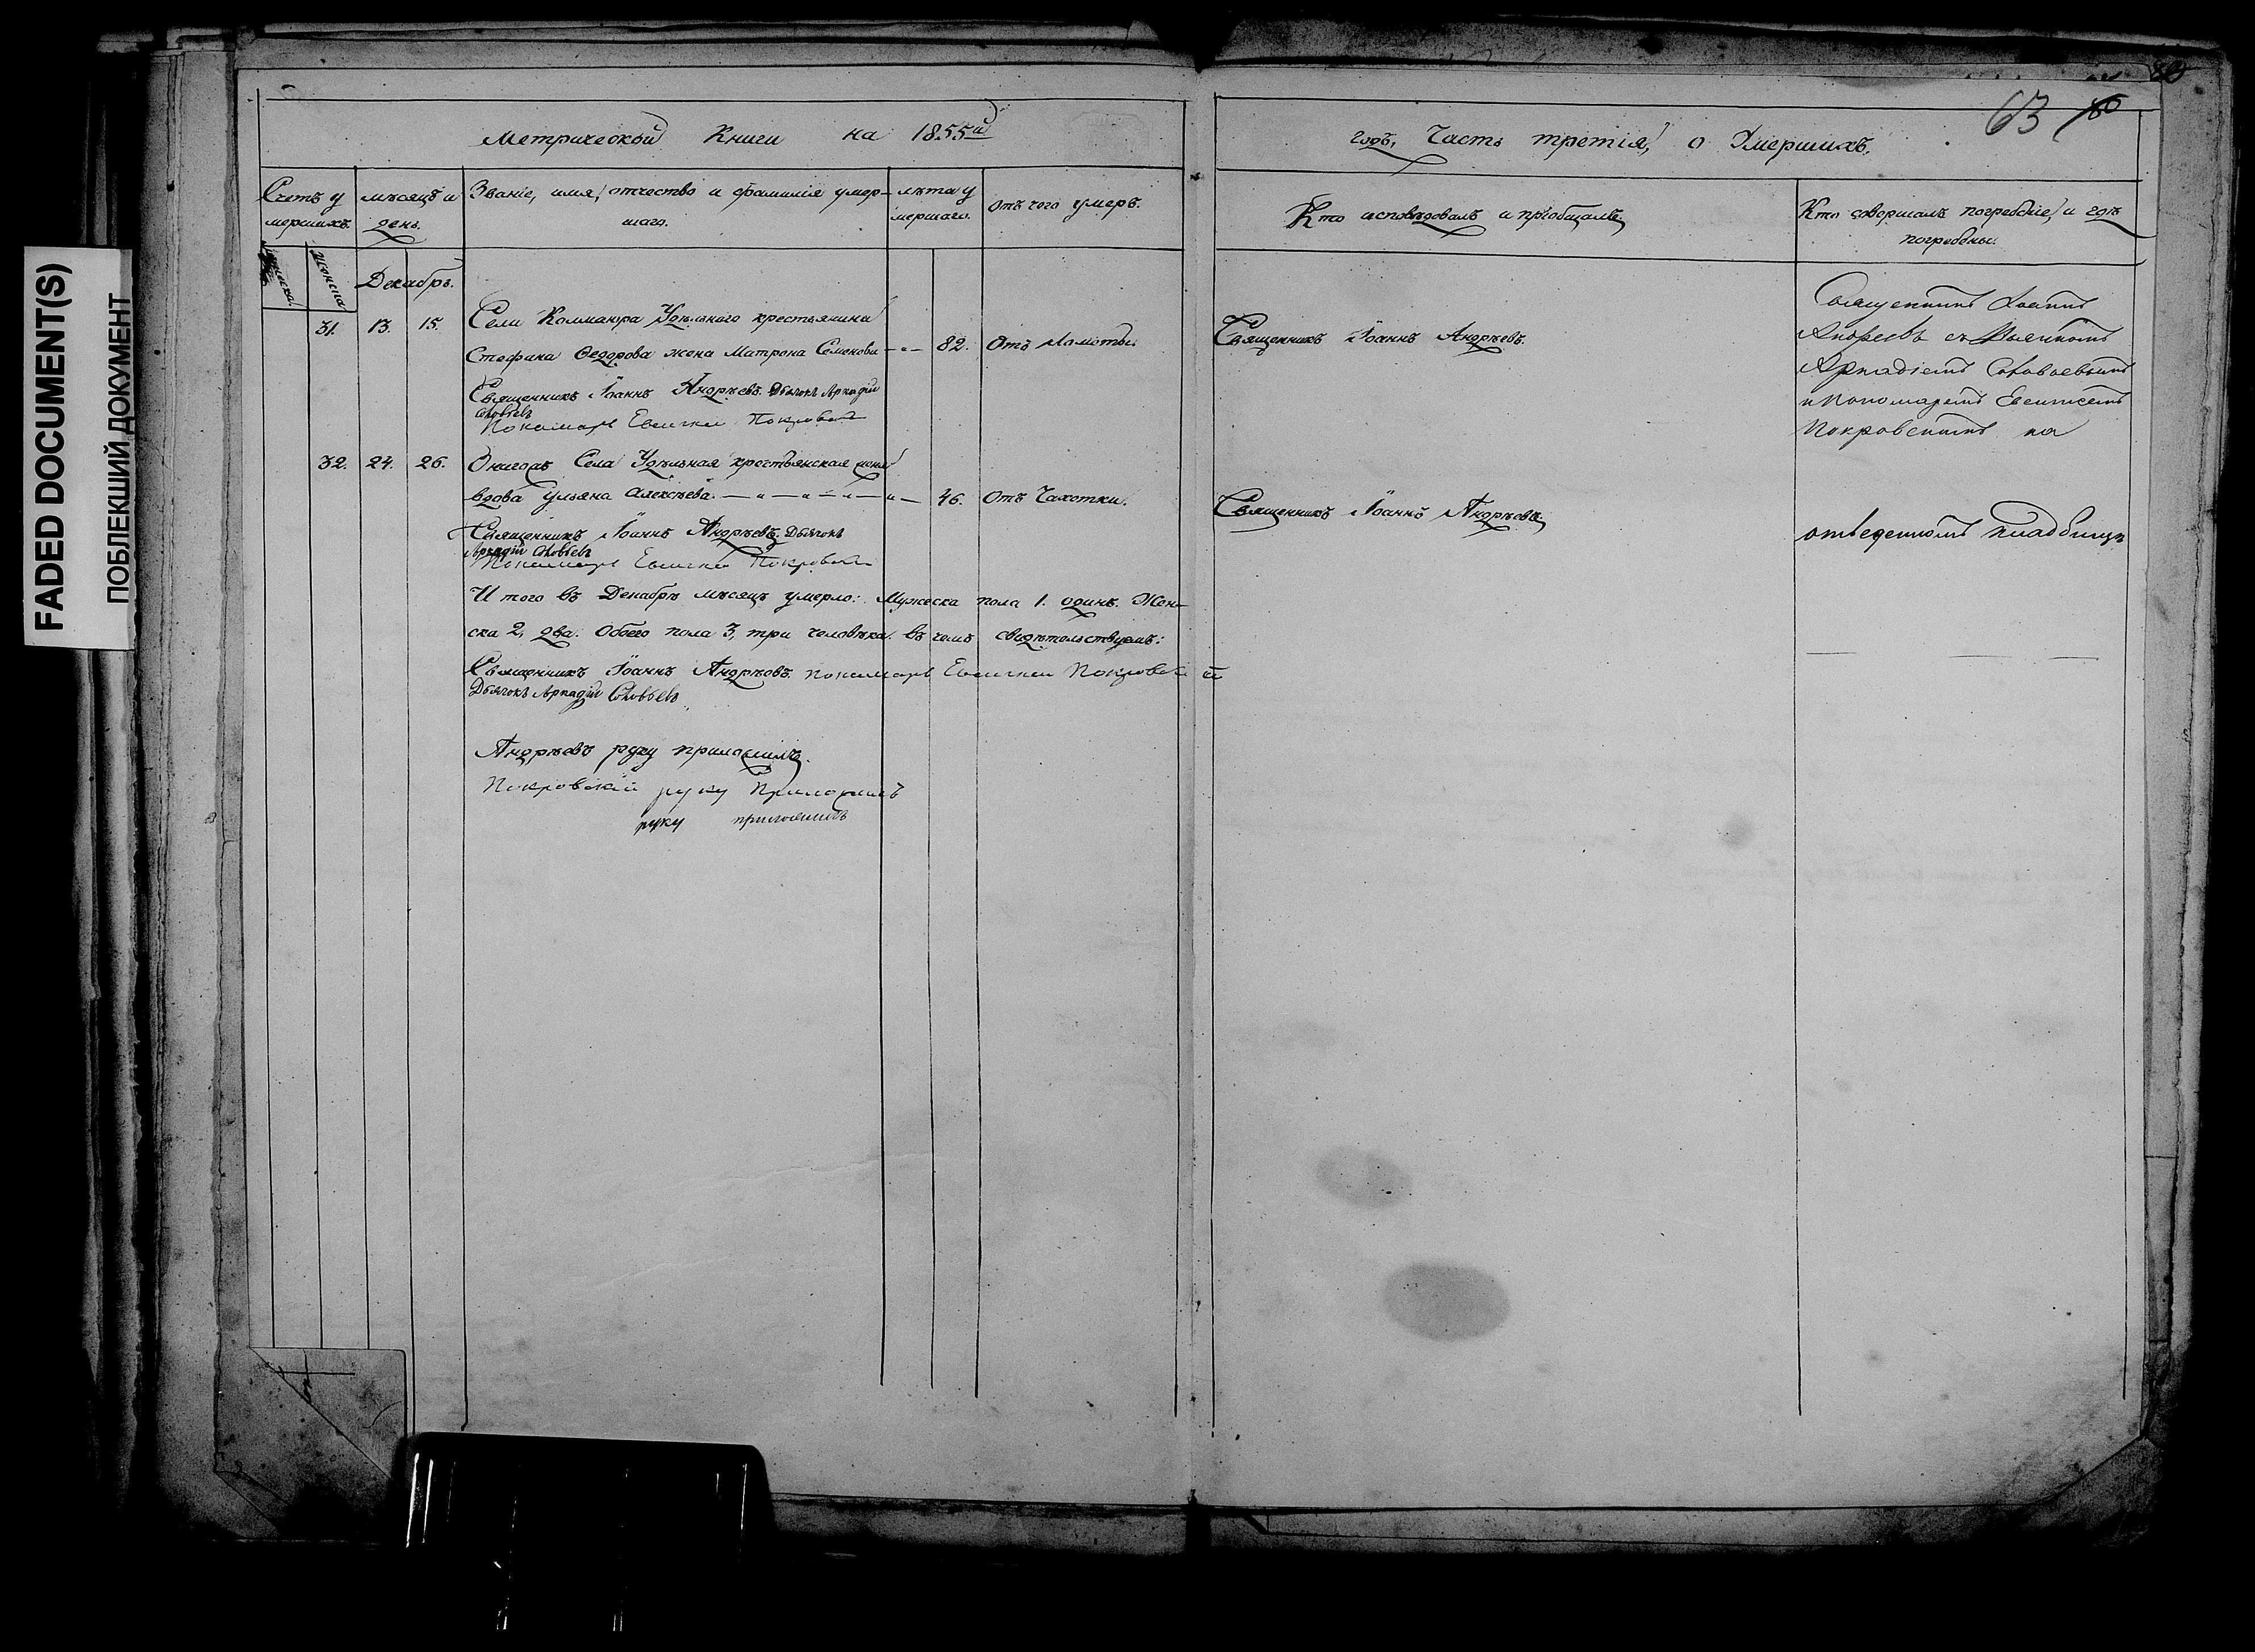 FADED DOCUMENT(S)
ПОБЛЕКШИЙ ДОКУМЕНТ
63
Метрической Книги на 1855й
годъ, Часть третія, о Умершихъ.
Счетъ у
мершихъ.
мѣсяцъ и
день.
Званіе, имя, отчество и фамилія умер-
шаго.
лѣта у
мершаго.
отъ чего умеръ.
Кто исповѣдовалъ и пріобщалъ,
Кто совершалъ погребеніе, и гдѣ
погребены.
Мужеска.
Женска
Декабрь.
31. 13. 15.
Села Колмаюра Удѣльнаго крестьянина
Стефана Ѳедорова жена Матрона Семенова 82. Отъ Ломоты.
Священникъ Іоаннъ Андрѣевъ. Дьячокъ Аркадій
Соловьевъ
Пономарь Евсигней Покровскій
Священникъ Іоаннъ Андрѣевъ.
Священникъ Іоаннъ
Андреевъ съ Дьячкомъ
Аркадіемъ Соловьевымъ
и Пономаремъ Евсигнеемъ
Покровскимъ на
отведенномъ кладбищѣ
32. 24. 26.
Села Удѣльная крестьянская
вдова Ульяна Алексѣева. 46. отъ Чахотки.
Священникъ Іоаннъ Андрѣевъ. Дьячокъ
Аркадій Соловьевъ
Пономарь Евсигней Покровскій
Священникъ Іоаннъ Андрѣевъ,
И того въ Декабрѣ мѣсяцѣ умерло: Мужеска пола 1. одинъ. Жен-
ска 2, два. Обоего пола 3, три человѣка. въ чемъ свидѣтельствуемъ:
Священникъ Іоаннъ Андрѣевъ. пономарь Евсигней Покровскій
Дьячокъ Аркадій Соловьевъ
Андрѣевъ руку приложилъ.
Покровскій руку Приложилъ
руку приложилъ